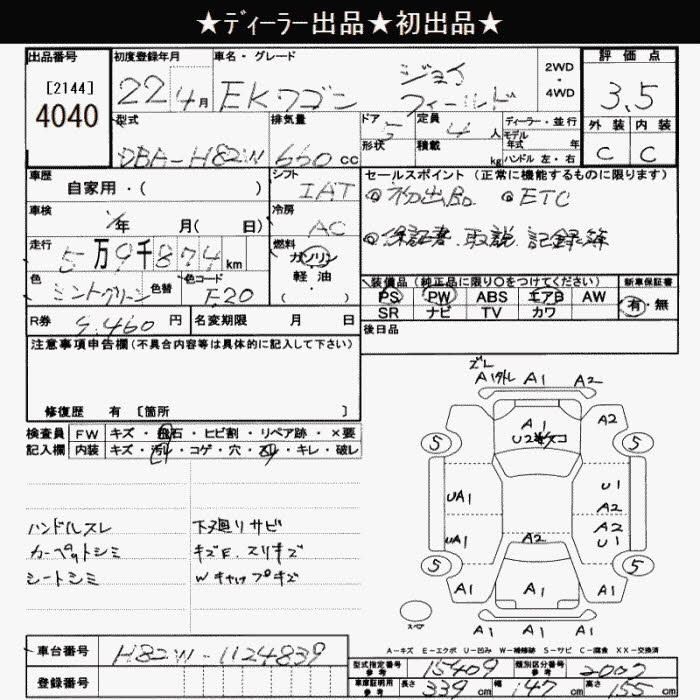 ★ディーラー出品★初出品★
出品番号
[2144]
4040
初度登録年月
22年4月
車名・グレード
EKワゴン ジョイフィールド
2WD・4WD
評価点
3.5
外装 内装
C C
型式
DBA-H82W
排気量
660cc
ドア 5
形状
定員 4人
積載 kg
ディーラー・並行
モデル年式 年
ハンドル 左・右
車歴
自家用・( )
シフト
IAT
セールスポイント(正常に機能するものに限ります)
◎初出品 ◎ETC
◎保証書.取説.記録簿
車検
年 月( 日)
冷房
AC
走行
5万9千874km
燃料
ガソリン
軽・油
( )
色
ミントグリーン
色替
色コード
F20
装備品(純正品に限り○をつけてください)
PS PW ABS エアB AW
SR ナビ TV カワ
新車保証書
有・無
R券 円
名変期限 月 日
後日品
注意事項申告欄(不具合内容等は具体的に記入して下さい)
修復歴 有 [箇所 ]
検査員
記入欄
FW キズ・飛石・ヒビ割・リペア跡・×要
内装 キズ・汚れ・コゲ・穴・スレ・キレ・破レ
ハンドルスレ 下廻りサビ
カーペットシミ キズE.スリキズ
シートシミ Wキャップキズ
ズレ
A1外レ A1 A2
A1
U2
A2
5 5
UA1 U1
A2
A2
UA1 A2 U1
5 5
A1 A1 A1
A1 A1 A1
スペア
A-キズ E-エクボ U-凹み W-補修跡 S-サビ C-腐食 XX-交換済
車台番号
H82W-1124839
登録番号
型式指定番号
参考
15409
類別区分番号
参考
2002
車庫証明用
参考
長さ 339cm 幅 147cm 高さ 155cm